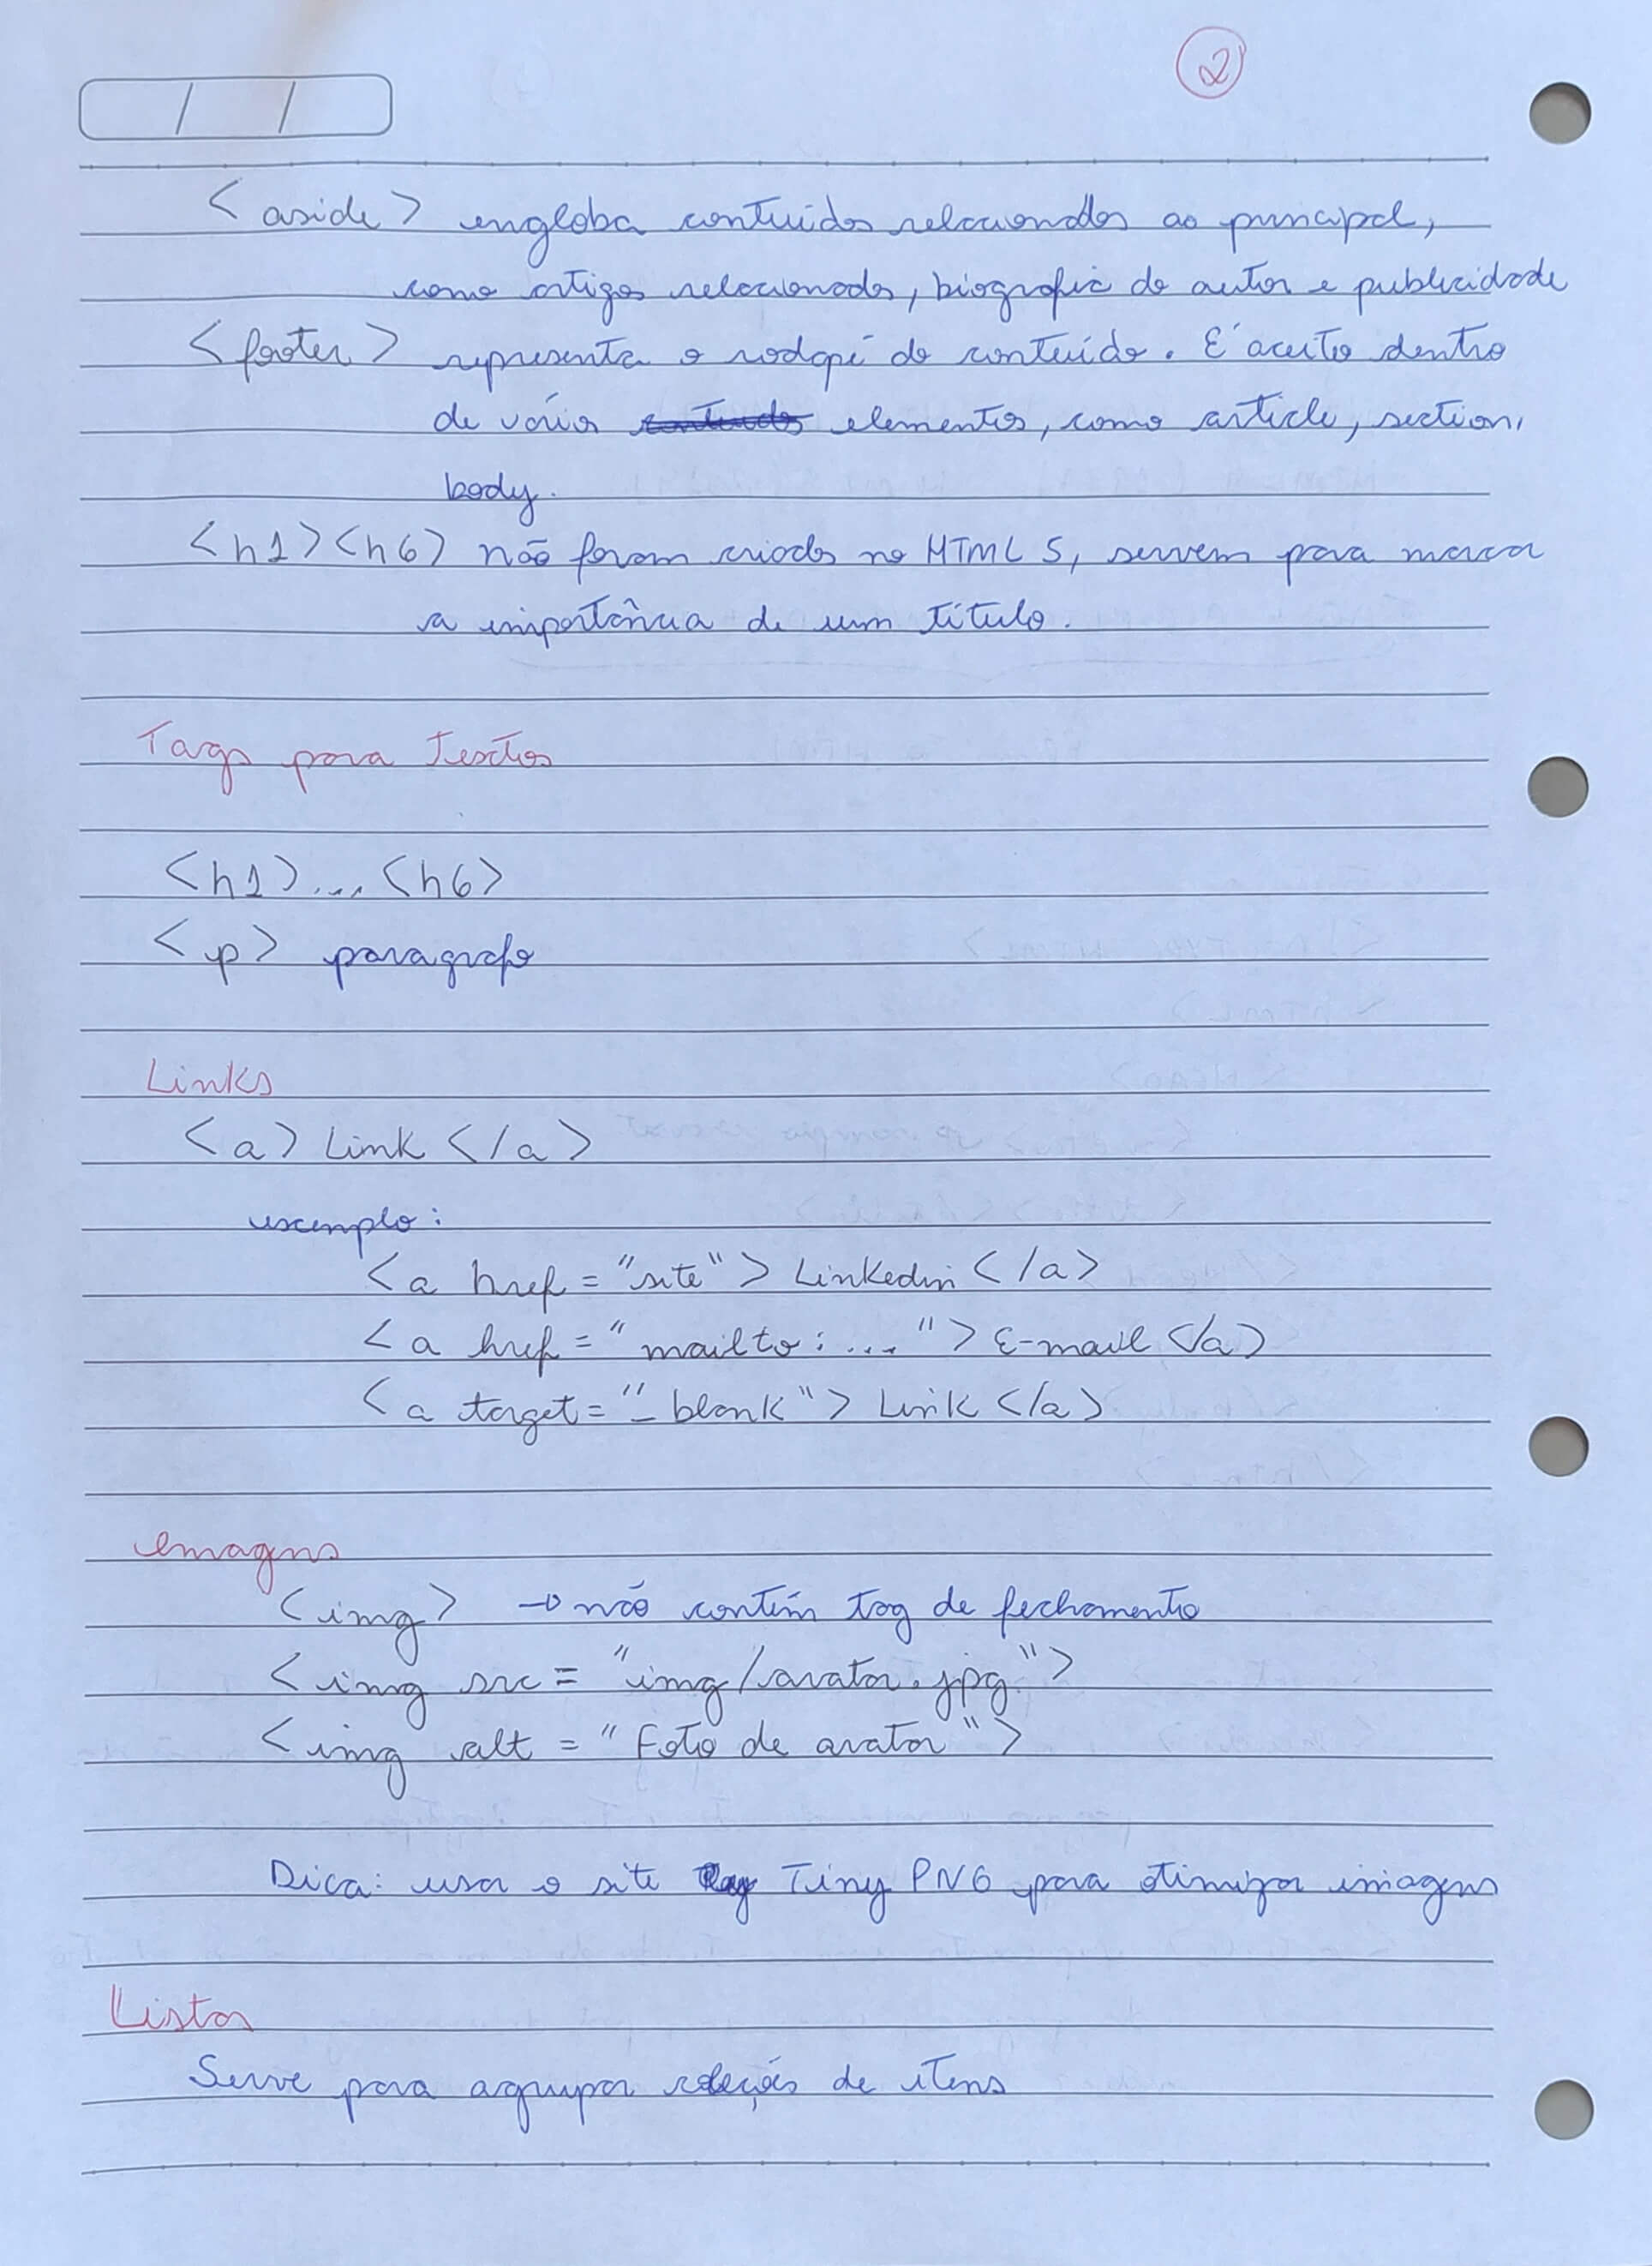 2
/ /
<aside> engloba conteúdos relacionados ao principal,
como artigos relacionados, biografia do autor e publicidade
<footer> representa o rodapé do conteúdo. É aceito dentro
de vários elementos, como article, section,
body.
<h1><h6> não foram criados no HTML 5, servem para marcar
a importância de um título.
Tags para Textos
<h1>...<h6>
<p> paragrafo
Links
<a> Link </a>
exemplo:
<a href = "site"> Linkedin </a>
<a href = "mailto: ..."> E-mail </a>
<a target = "_blank"> Link </a>
Imagens
<img> → não contém tag de fechamento
<img src = "img/avatar.jpg">
<img alt = "Foto de avatar">
Dica: usar o site Tiny PNG para otimizar imagens
Listas
Serve para agrupar de itens